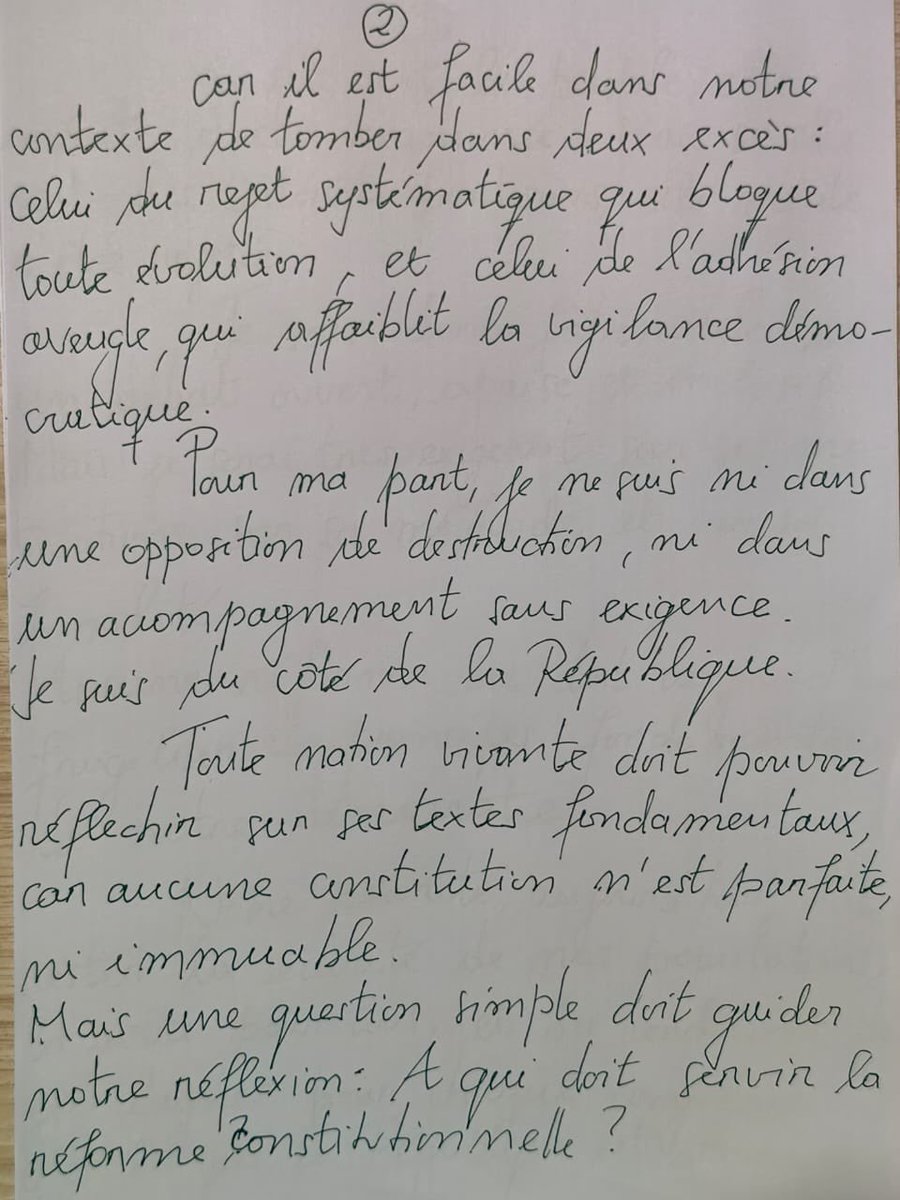 ②
car il est facile dans notre
contexte de tomber dans deux excès :
Celui du rejet systématique qui bloque
toute évolution, et celui de l'adhésion
aveugle, qui affaiblit la vigilance démo-
cratique.
Pour ma part, je ne suis ni dans
une opposition de destruction, ni dans
un accompagnement sans exigence.
Je suis du côté de la République.
Toute nation vivante doit pouvoir
réflechir sur ses textes fondamentaux,
car aucune constitution n'est parfaite,
ni immuable.
Mais une question simple doit guider
notre réflexion : A qui doit servir la
réforme constitutionnelle ?